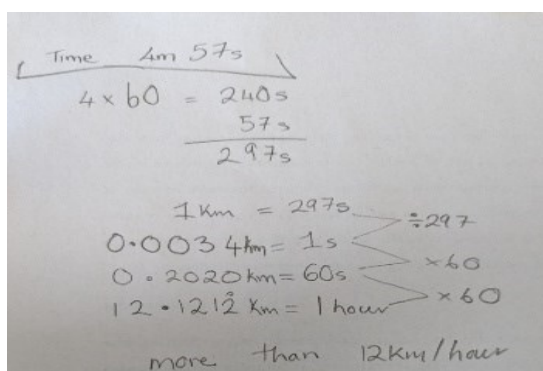 Time 4m 57s
4 × 60 = 240s
57s
297s
1 Km = 297s ÷297
0.0034km = 1s
×60
0.2020km = 60s
×60
12.1212 Km = 1 hour
more than 12Km/hour